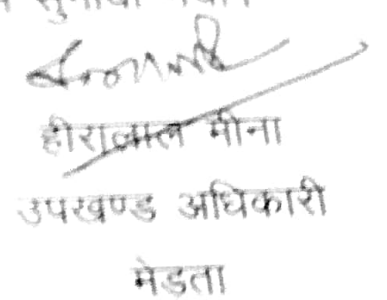 हीरालाल मीना
उपखण्ड अधिकारी
मेडता